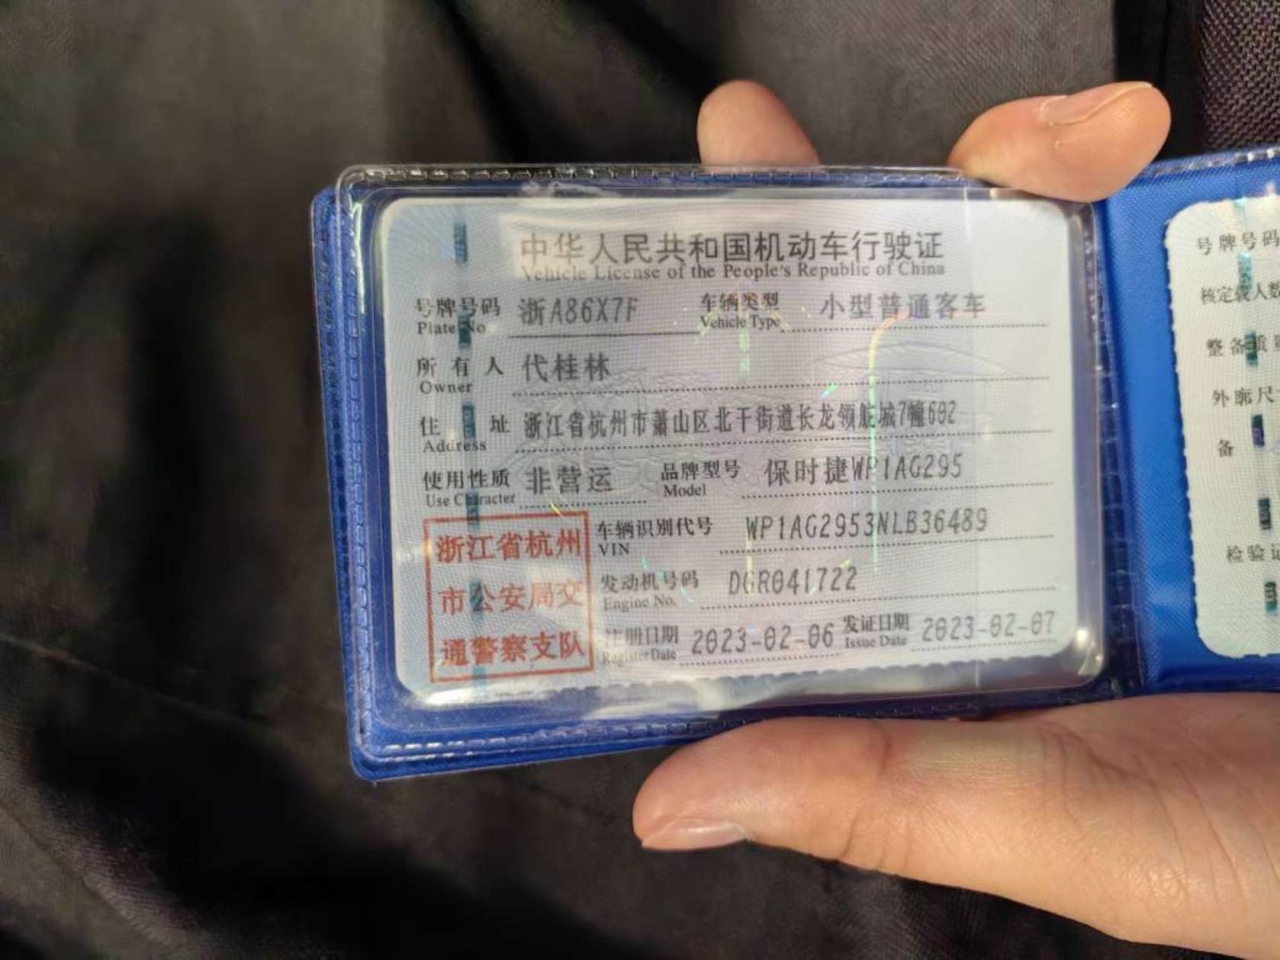 中华人民共和国机动车行驶证
Vehicle License of the People's Republic of China
号牌号码 浙A86X7F 车辆类型 小型普通客车
Plate No Vehicle Type
所有人 代桂林
Owner
住址 浙江省杭州市萧山区北干街道长龙领航城7幢602
Address
使用性质 非营运 品牌型号 保时捷WP1AG295
Use Character Model
浙江省杭州
市公安局交
通警察支队
车辆识别代号 WP1AG2953NLB36489
VIN
发动机号码 DGR041722
Engine No.
注册日期 2023-02-06 发证日期 2023-02-07
Register Date Issue Date
号牌号码
核定载人数
整备质量
外廓尺
备
检验记